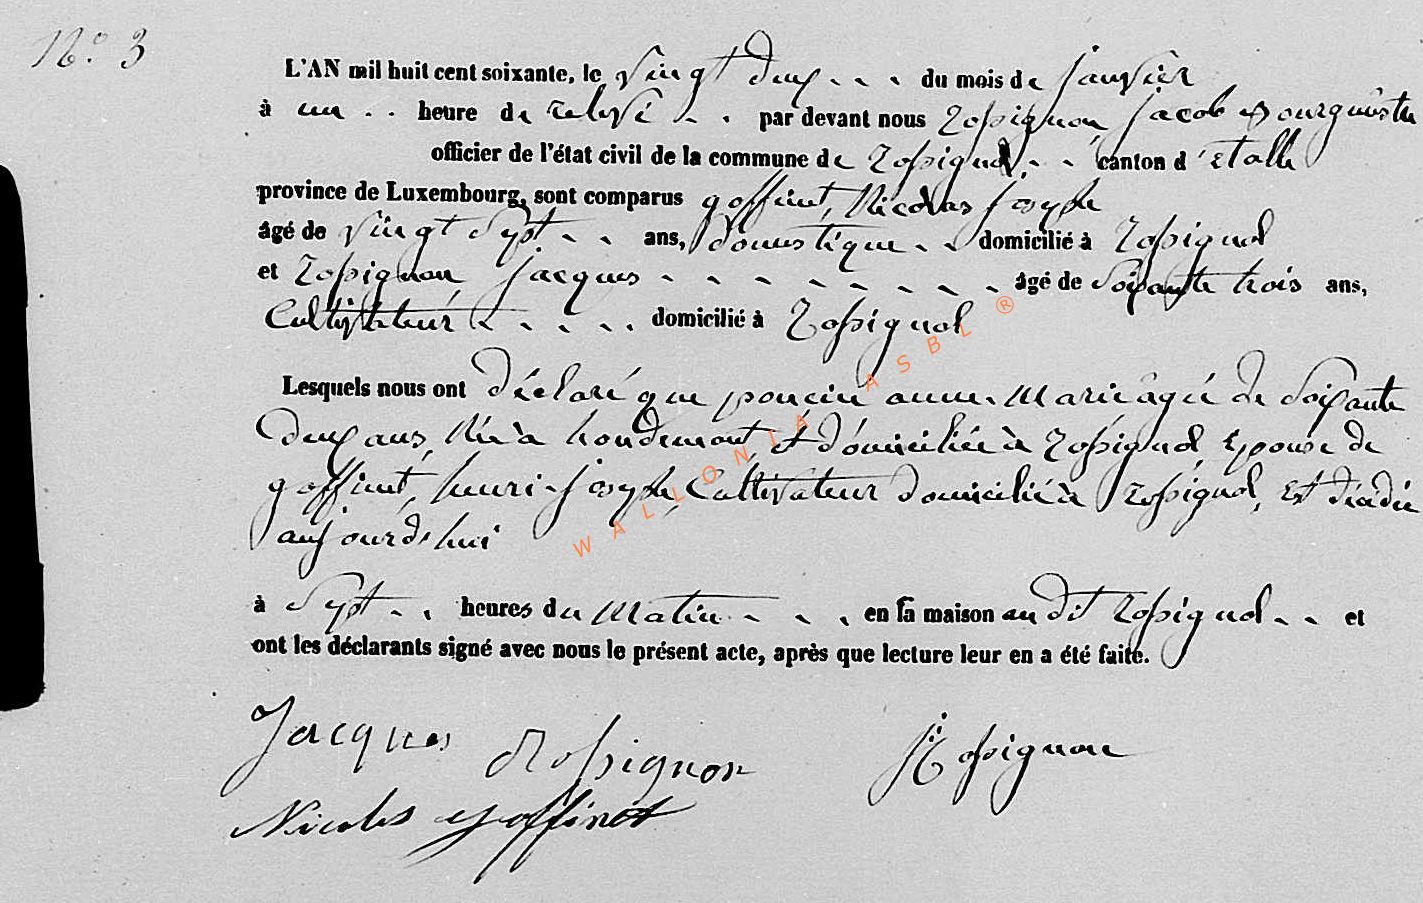 N.° 3
L'AN mil huit cent soixante, le vingt deux - - - du mois de janvier
à une - - heure de relevé - - - par devant nous Rossignon, jacob Bourguistre
officier de l'état civil de la commune de Rossignol - - canton d'étalle
province de Luxembourg, sont comparus goffinet, Nicolas joseph
âgé de vingt sept - - - ans, domestique - - domicilié à Rossignol
et Rossignon jacques - - - - - - - - âgé de soixante trois ans,
Cultivateur - - - - - domicilié à Rossignol
Lesquels nous ont déclaré que poncin anne-Marie âgée de soixante
deux ans, Née à houdemont, et domiciliée à Rossignol, Epouse de
goffinet, henri-joseph, Cultivateur domicilié à Rossignol, Est décédée
aujourd'hui
à sept - - heures du matin - - - - en sa maison audit Rossignol - - et
ont les déclarants signé avec nous le présent acte, après que lecture leur en a été faite.
Jacques Rossignon
JRossignon
Nicolas goffinet
WALLONIA ASBL ®